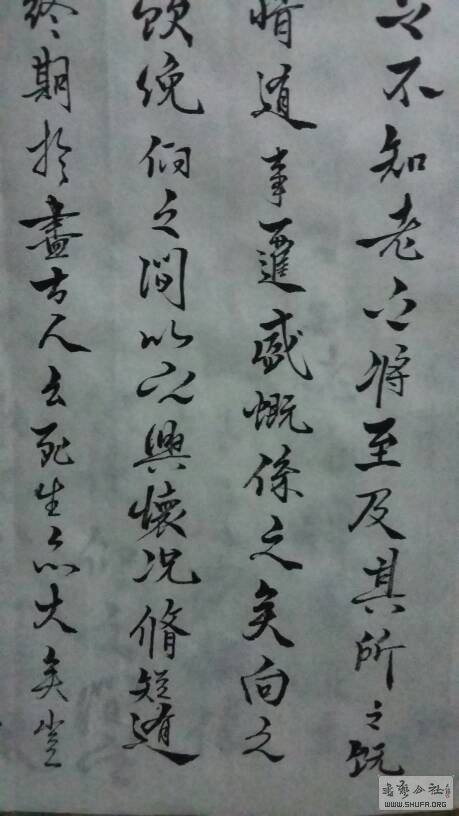 不知老之將至及其所之既
情隨事遷感慨係之矣向之
欣俛仰之間以之興懷況脩短隨
終期於盡古人云死生亦大矣豈
书法公社
WWW.SHUFA.ORG